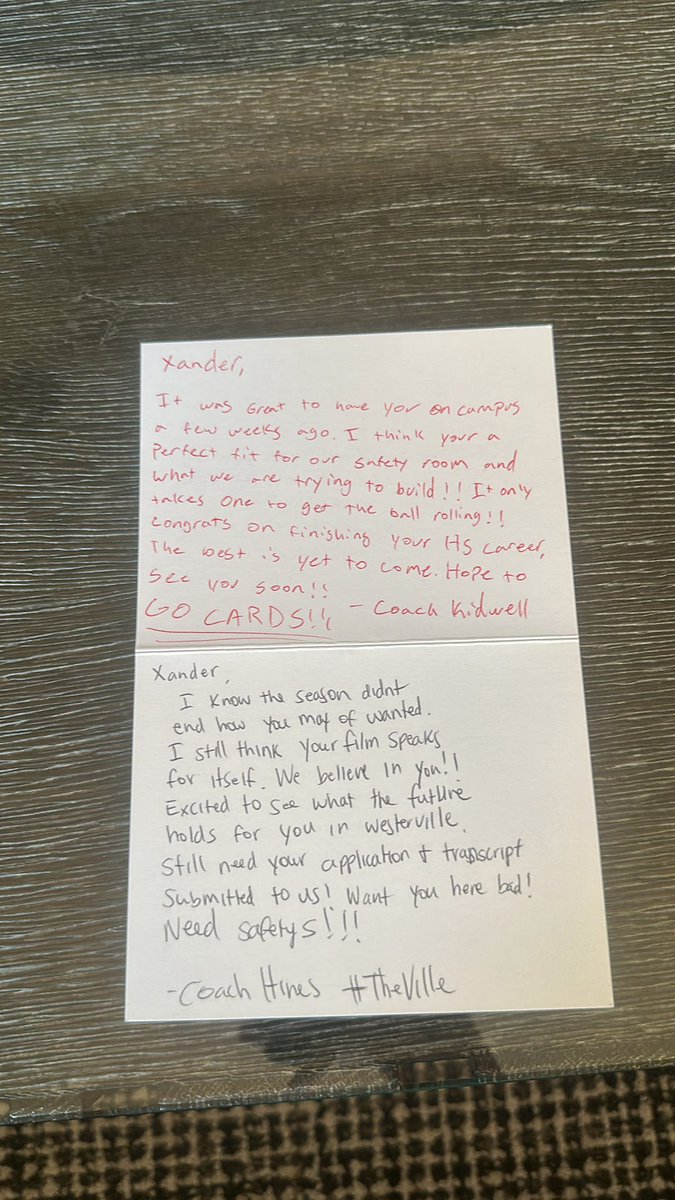 Xander,
It was Great to have you on campus
a few weeks ago. I think your a
Perfect fit for our safety room and
what we are trying to build!! It only
takes one to get the ball rolling!!
Congrats on finishing your HS career,
The best is yet to come. Hope to
see you soon!!
GO CARDS!! - Coach Kidwell
Xander,
I know the season didnt
end how you may of wanted.
I still think your film speaks
for itself. We believe in you!!
Excited to see what the future
holds for you in westerville.
Still need your application & transcript
Submitted to us! Want you here bad!
Need safetys!!!
-Coach Hines #TheVille